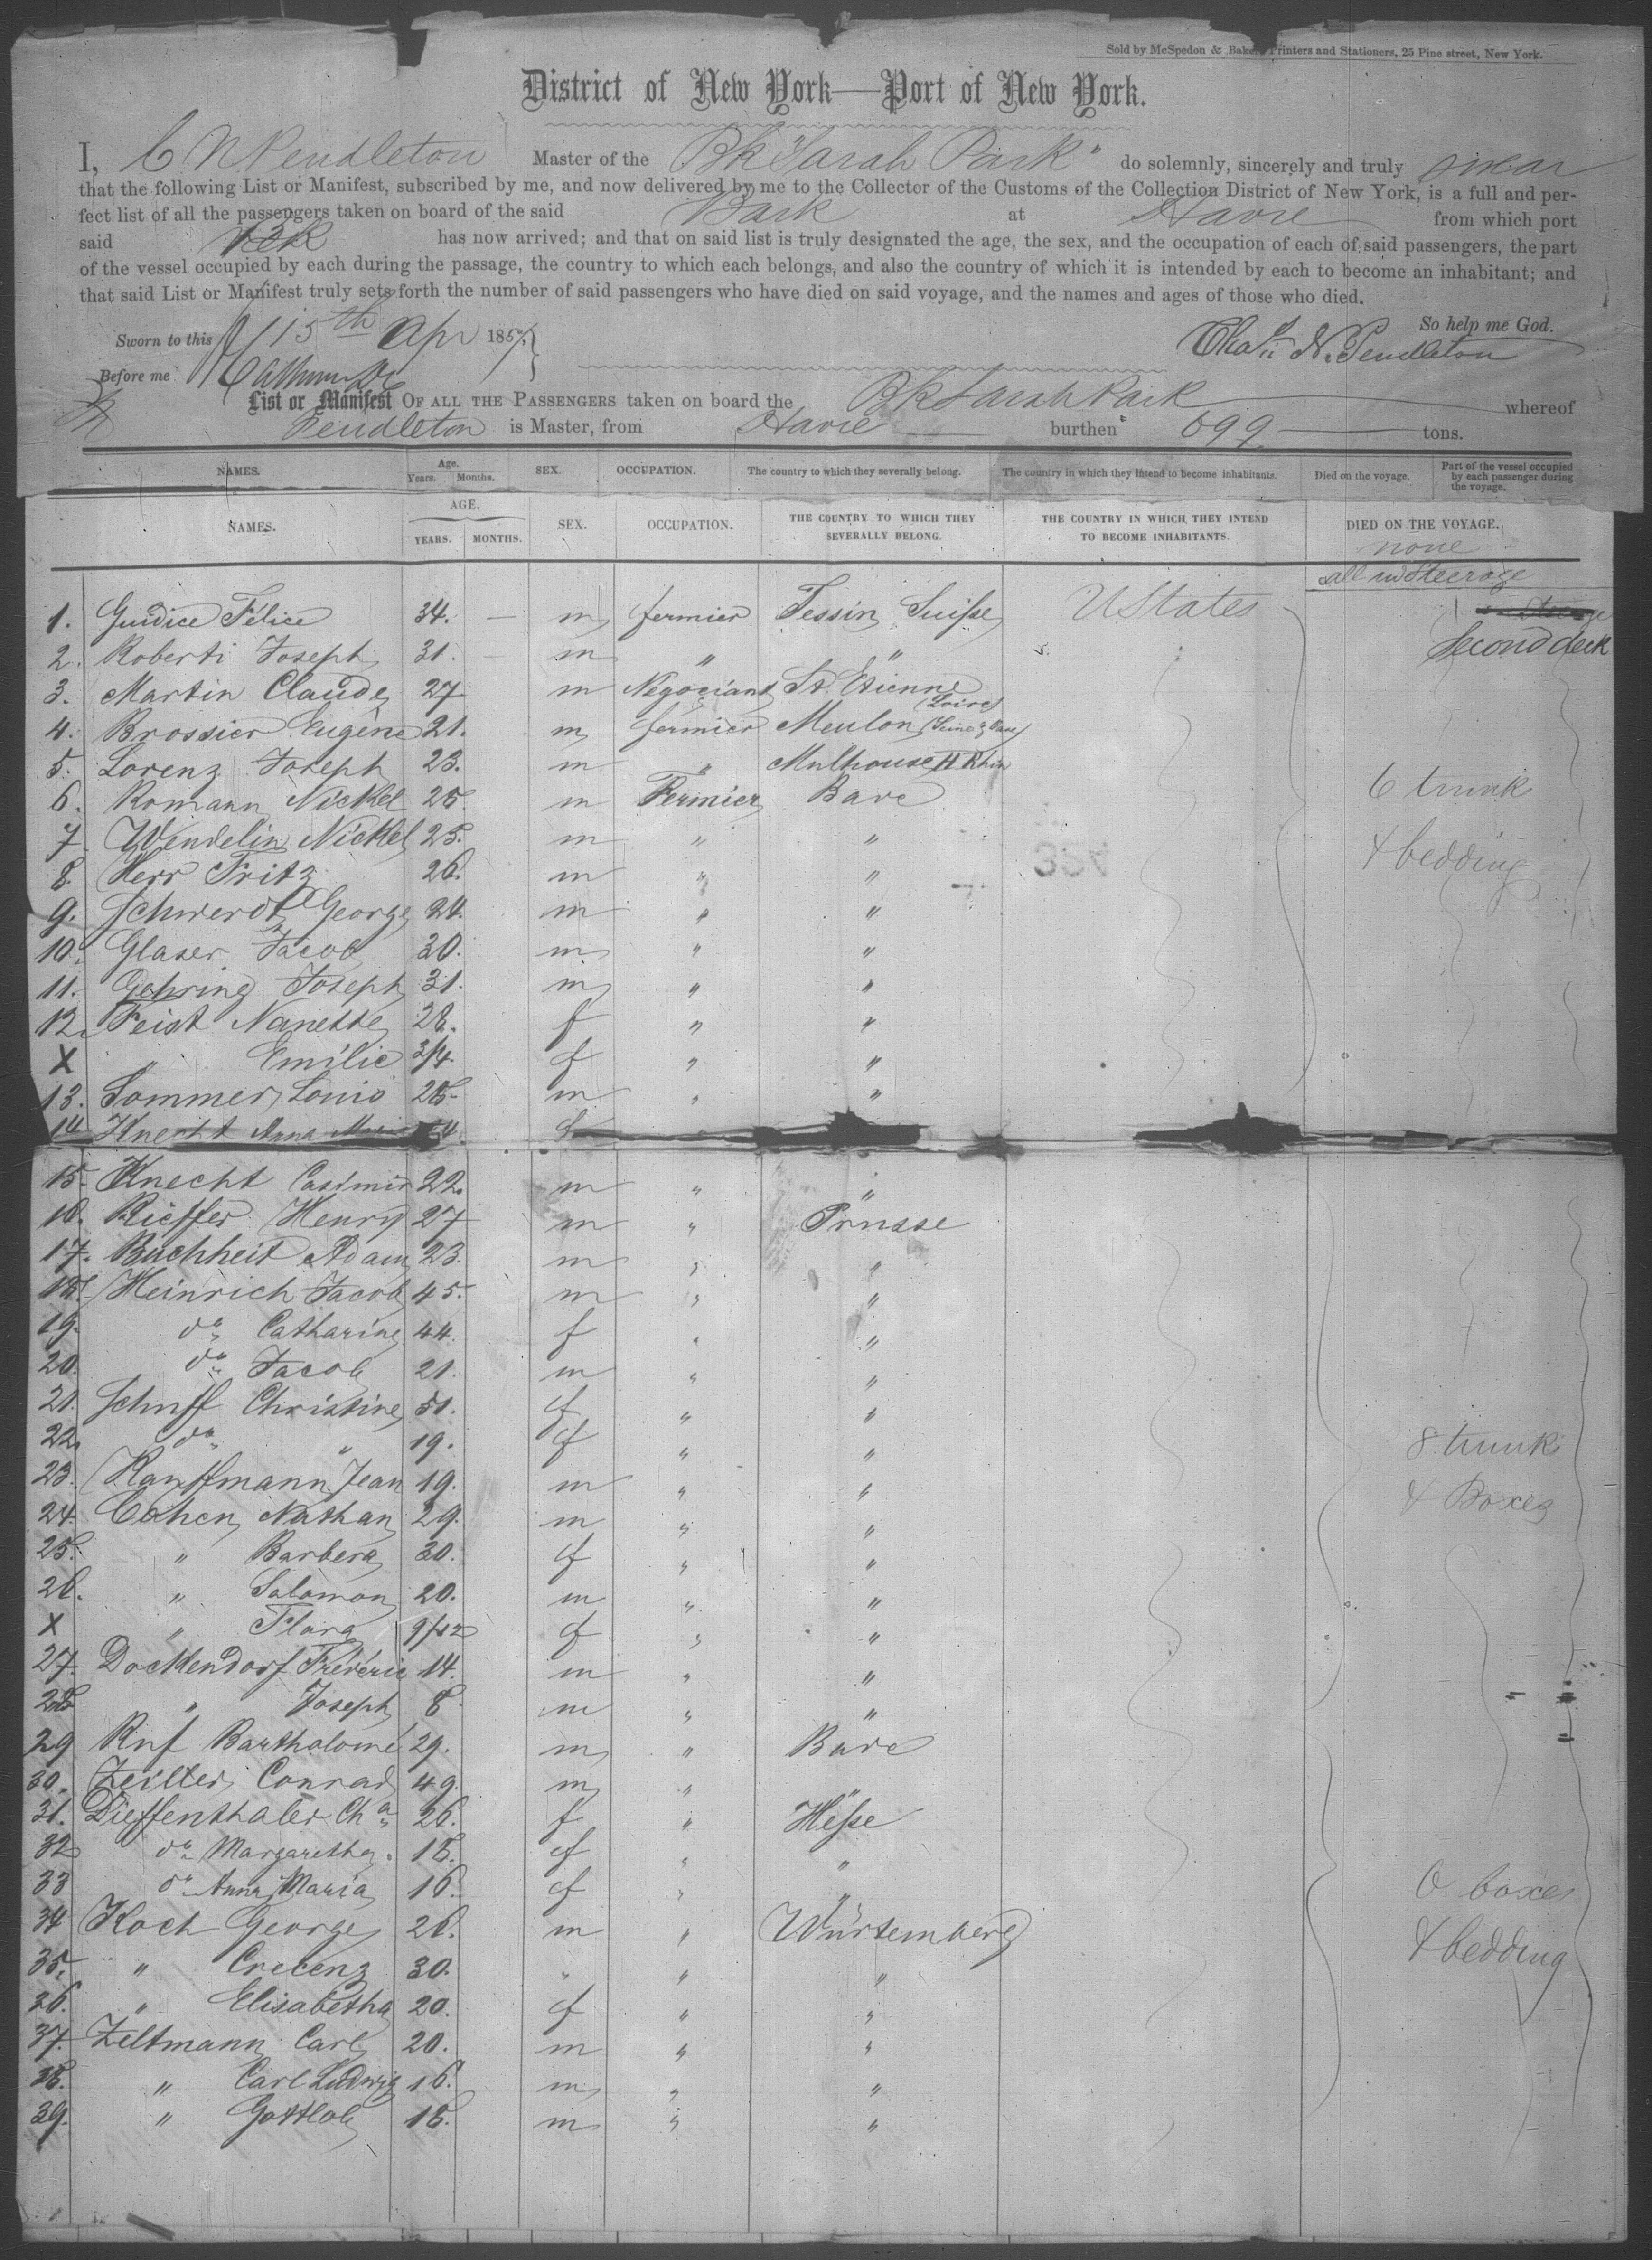 Sold by McSpedon & Baker, Printers and Stationers, 25 Pine street, New York.
District of New York—Port of New York.
I, C N Pendleton Master of the Bk "Sarah Park" do solemnly, sincerely and truly swear
that the following List or Manifest, subscribed by me, and now delivered by me to the Collector of the Customs of the Collection District of New York, is a full and per-
fect list of all the passengers taken on board of the said Bark at Havre from which port
said Bk has now arrived; and that on said list is truly designated the age, the sex, and the occupation of each of said passengers, the part
of the vessel occupied by each during the passage, the country to which each belongs, and also the country of which it is intended by each to become an inhabitant; and
that said List or Manifest truly sets forth the number of said passengers who have died on said voyage, and the names and ages of those who died.
So help me God.
Sworn to this 15th Apr 1857.
Chas. N. Pendleton
Before me
List or Manifest OF ALL THE PASSENGERS taken on board the Bk Sarah Park whereof
Pendleton is Master, from Havre burthen 699 tons.
NAMES. Age. Years. Months. SEX. OCCUPATION. The country to which they severally belong. The country in which they intend to become inhabitants. Died on the voyage. Part of the vessel occupied by each passenger during the voyage.
NAMES. AGE. YEARS. MONTHS. SEX. OCCUPATION. THE COUNTRY TO WHICH THEY SEVERALLY BELONG. THE COUNTRY IN WHICH THEY INTEND TO BECOME INHABITANTS. DIED ON THE VOYAGE.
none
all in Steerage
1. Guidice Félice 34. — m fermier Tessin Suisse U States
2. Roberti Joseph 31. — m " " Second deck
3. Martin Claude 27 m Negociant St. Etienne (Loire)
4. Brossier Eugène 21. m fermier Meulon (Seine & Oise)
5. Lorenz Joseph 23. m " Mulhouse H Rhin
6. Romann Nickel 25. m Fermier Bave 6 trunk
7. Wendelin Nickel 25. m " " & bedding
8. Herr Fritz 26. m " "
9. Schwerdt George 24. m " "
10. Glaser Jacob 30. m " "
11. Gehring Joseph 31. m " "
12. Feist Nanette 28. f " "
X " Emilie 3/4. f " "
13. Sommer Louis 25. m " "
14 Knecht Anna f
15. Knecht Casimir 22. m " "
16. Rieffer Henry 27 m " Prusse
17. Buchheit Adam 23. m " "
18. Heinrich Jacob 45. m " "
19. do Catharine 44. f " "
20. do Jacob 21. m " "
21. Schuff Christine 51. f " "
22. do " 19. f " " 8 trunk
23. Kauffmann Jean 19. m " " & Boxes
24. Cohen Nathan 29. m " "
25. " Barbera 30. f " "
26. " Salomon 20. m " "
X " Flora 9/12 f " "
27. Dockendorf Fréderic 14. m " "
28. " Joseph 8. m " "
29 Ruf Bartholomé 29. m " Bave
30. Zeiller Conrad 49. m " "
31. Dieffenthaler Cha 26. f " Hesse
32 do Margaretha 18. f " "
33 do Anna Maria 16. f " " 6 boxes
34 Koch George 26. m " Würtemberg & bedding
35. " Crecenz 30. " " "
36. " Elisabetha 20. f " "
37. Zeltmann Carl 20. m " "
38. " Carl Ludwig 16. m " "
39. " Gottlob 18. m " "